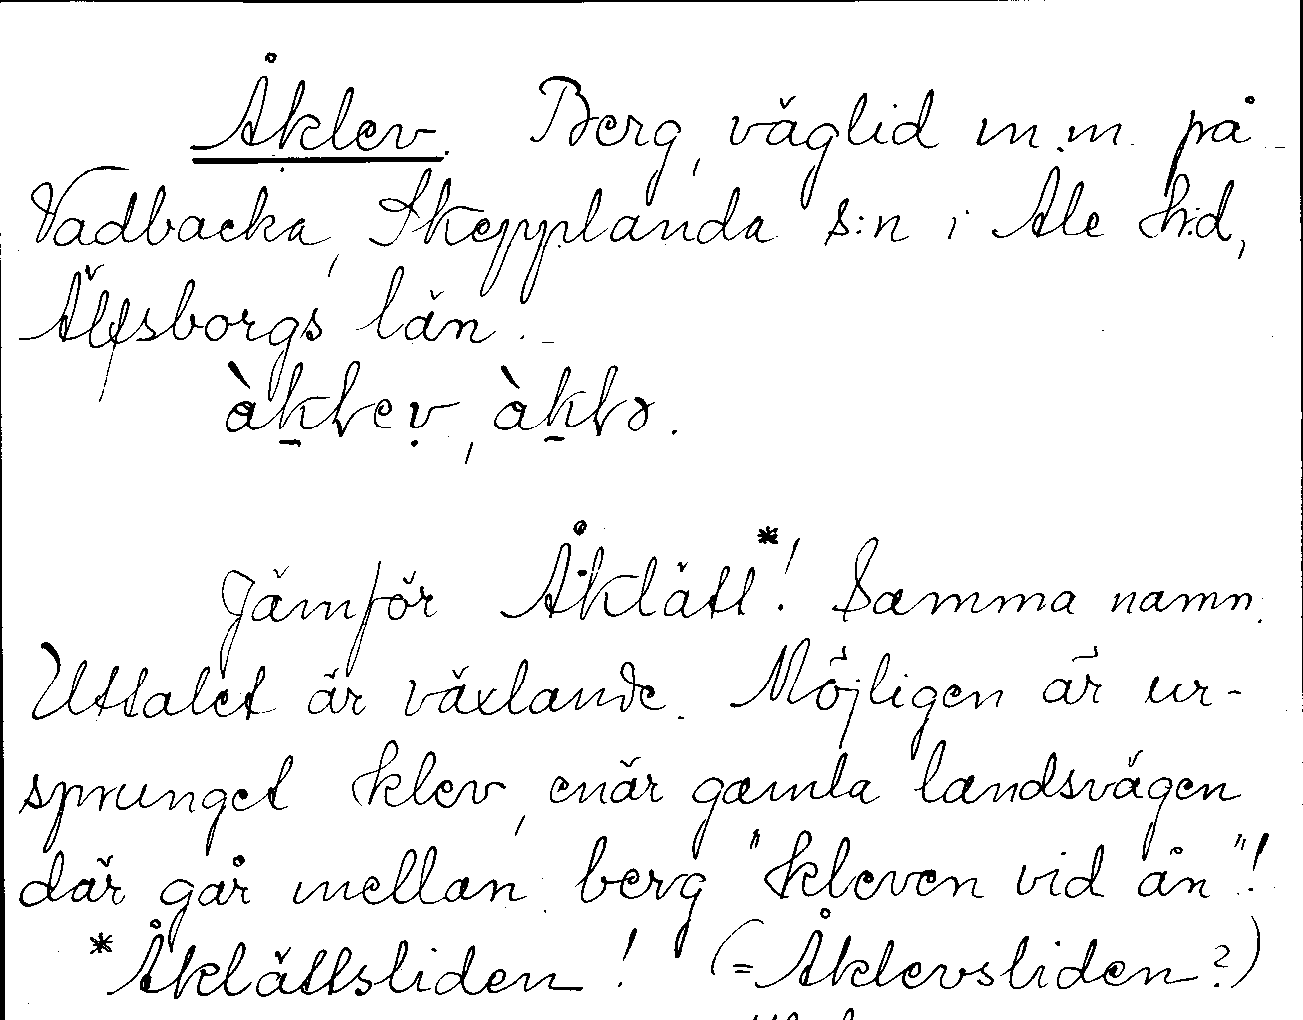 Åklev. Berg, väglid m.m. på
Vadbacka, Skepplanda s:n i Ale h:d,
Älfsborgs län.
Jämför Åklätt*! Samma namn.
Uttalet är växlande. Möjligen är ur-
sprunget klev, enär gamla landsvägen
där går mellan berg "kleven vid ån"!
*Åklättsliden! (=Åklevsliden?)